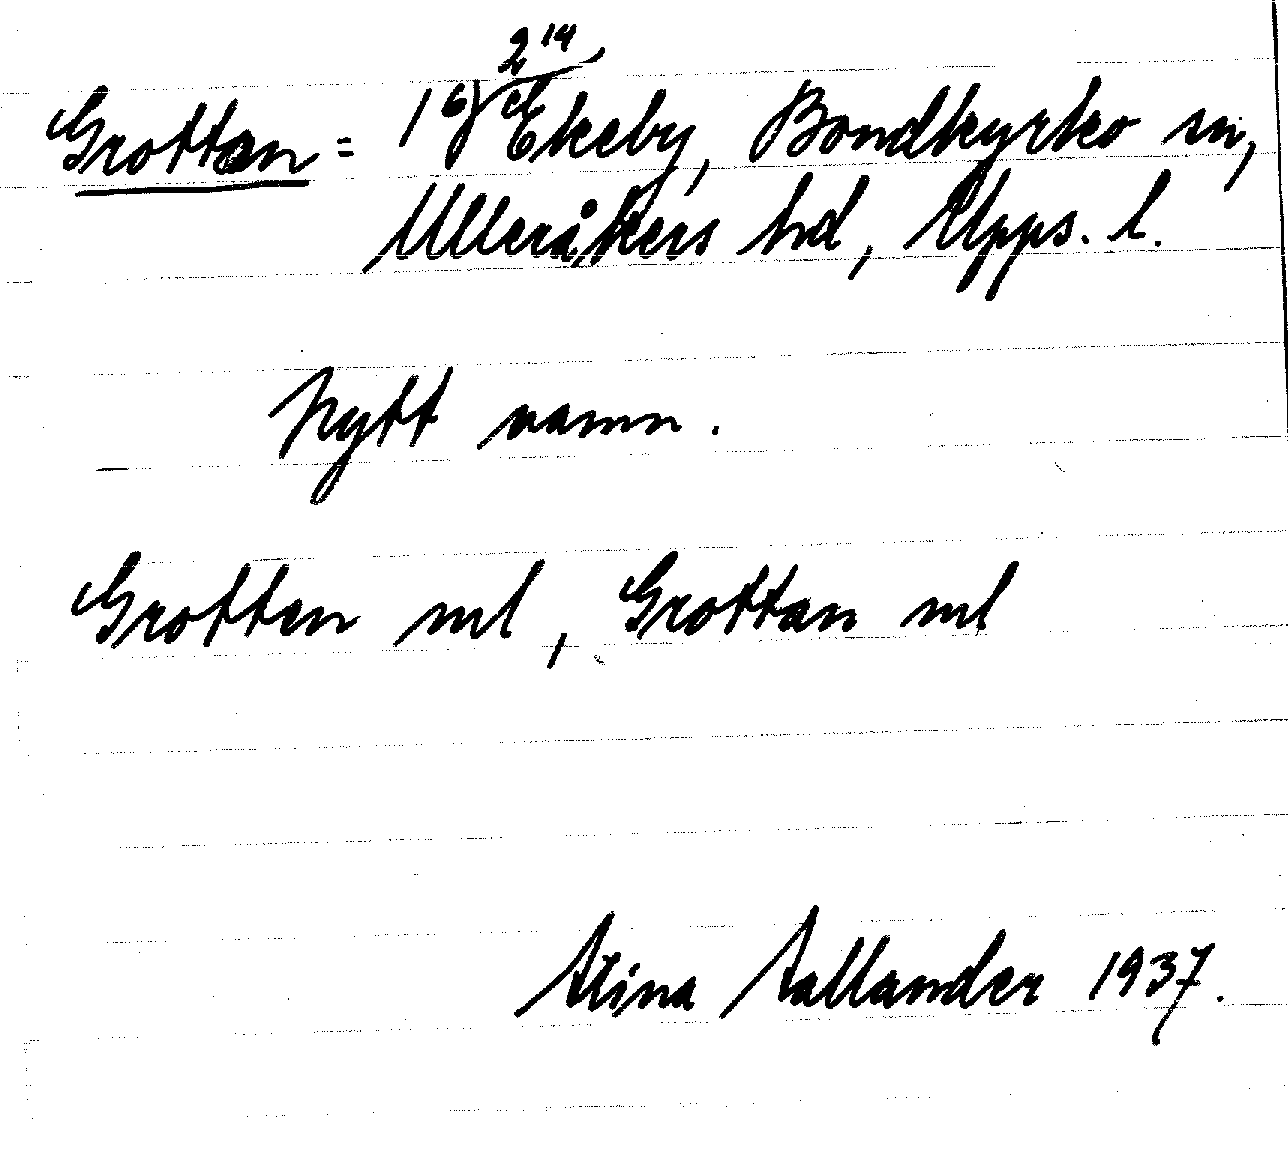 2 14
Grottan = 1 6 Ekeby, Bondkyrko sn,
Ulleråkers hd, Upps. l.
Nytt namn.
Grotten ml, Grottan ml
Stina Sallander 1937.